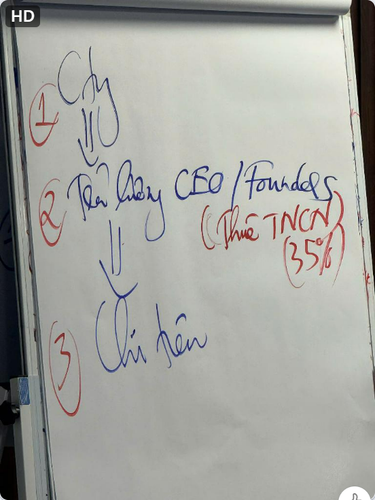 HD
① Cty
② Tiền lương CEO / Founders
(Thuế TNCN)
(35%)
③ Chi tiêu